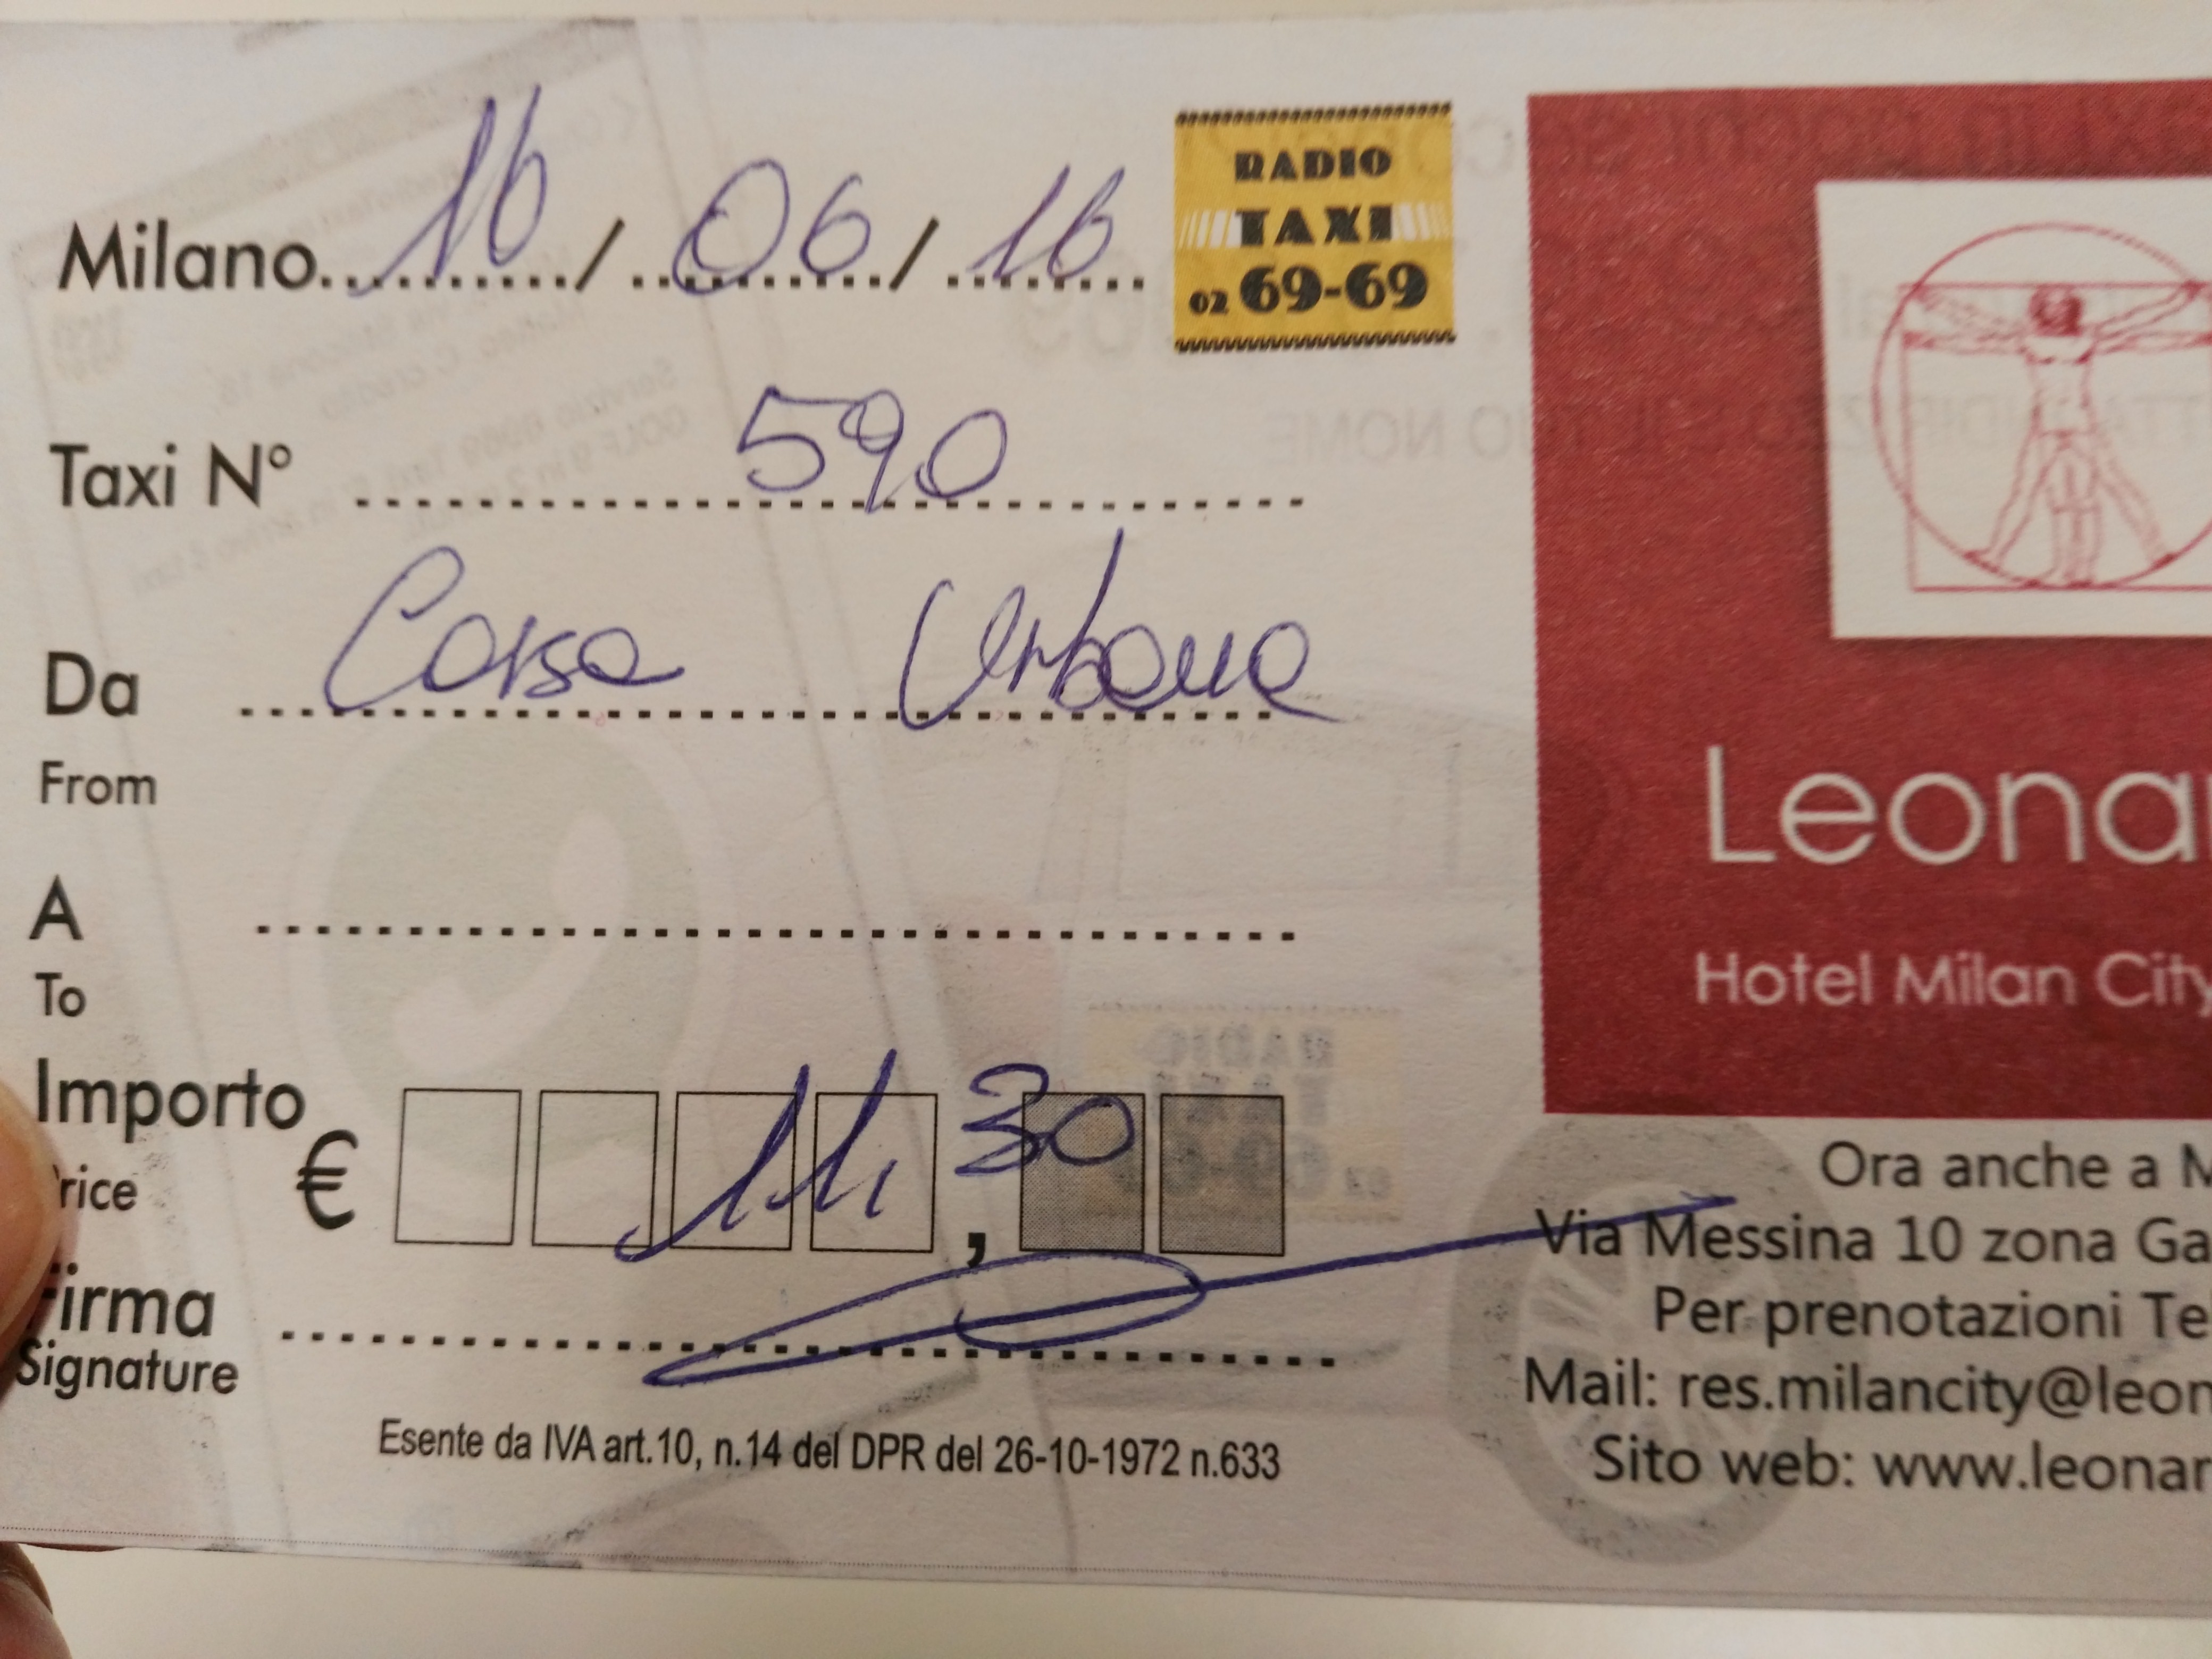 Milano 16 / 06 / 16
RADIO
TAXI
02 69-69
Taxi N° 590
Da Corsa Urbana
From
A
To
Importo € 11,30
rice
Firma
Signature
Esente da IVA art.10, n.14 del DPR del 26-10-1972 n.633
Leona
Hotel Milan City
Ora anche a M
Via Messina 10 zona Ga
Per prenotazioni Te
Mail: res.milancity@leon
Sito web: www.leonar